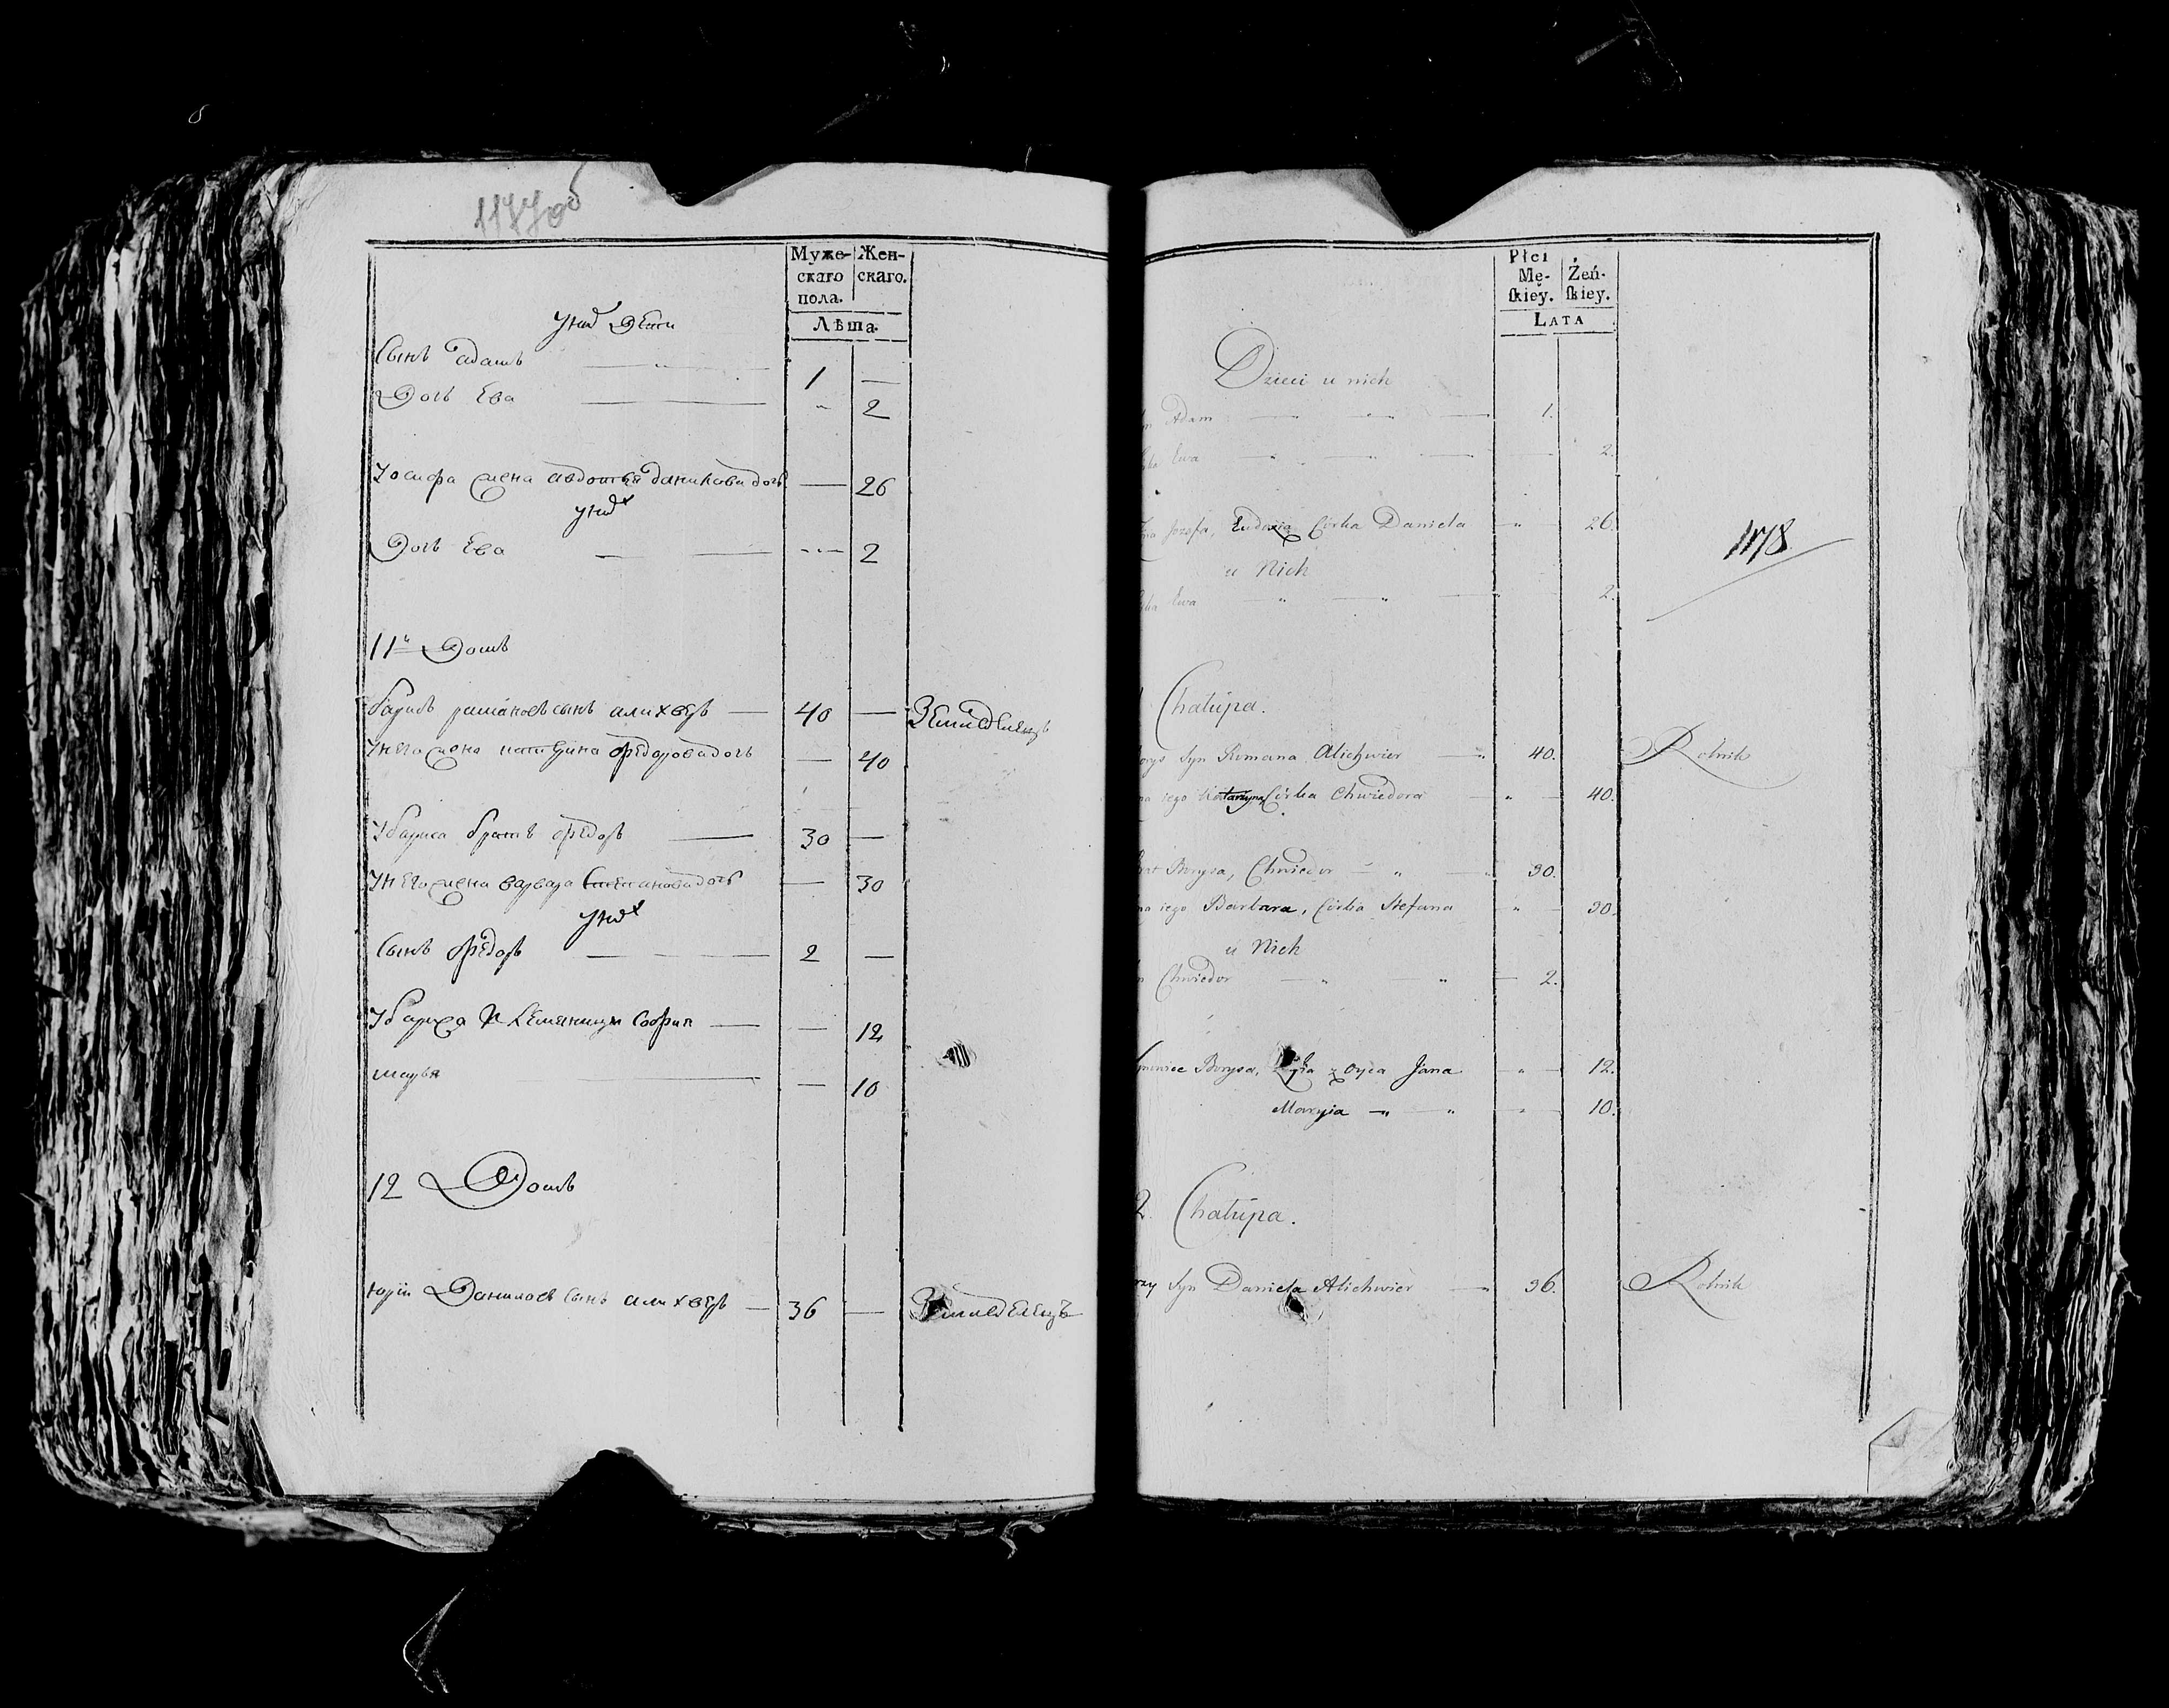 1177об
Муже-
скаго
пола.
Жен-
скаго.
Лѣта.
у них Дети
Сынъ адамъ 1 —
Дочь Ева " 2
Иосифа жена авдотья данилова дочь — 26
у них
Дочь Ева 2
11й Домъ
барисъ раманов сынъ алихверъ — 40 — Земледелецъ
У него жена катерина федорова дочь — 40
У бариса братъ федоръ — 30 —
У него жена варвара степанова дочь — 30
у них
Сынъ федоръ 2 —
У бариса племяницы София — 12
марья — 10
12 Домъ
юрiй Данилов Сынъ алихверъ — 36 — Земледелецъ
Płci
Mę-
ſkiey.
Żeń-
ſkiey.
LATA
Dzieci u nich
n Adam 1.
ka Ewa 2.
na Jozefa, Eudoxia Córka Daniela " 26.
1178
u Nich
ka Ewa 2.
Chałupa.
orys Syn Romana Alichwier 40. Rolnik
na iego Katarzyna Córka Chwiedora " 40.
rat Borysa, Chwiedor " 30.
na iego Barbara, Córka Stefana " 30.
u Nich
n Chwiedor " " 2.
Borysa, z Oyca Jana " 12.
Maryia " 10.
2. Chałupa.
rzy Syn Daniela Alichwier 36. Rolnik